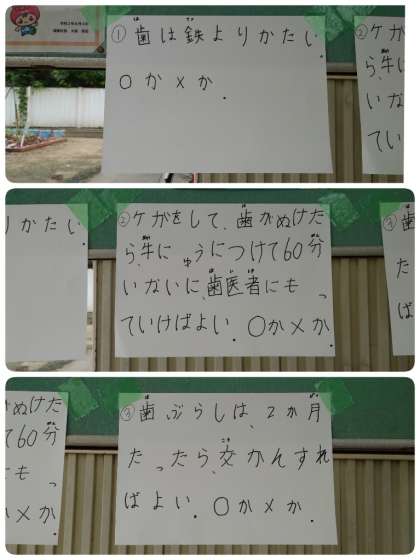 ①歯は鉄よりかたい
は
てつ
○か×か.
②ケガ
ら、牛に
いな
てい
りかたい.
②ケガをして、歯がぬけた
は
ら、牛にゅうにつけて60分
ぎゅう
ぷん
いないに、歯医者にもっ
は い しゃ
ていけばよい.○か×か.
歯
は
た
ば
ぬけた
60分
も っ
×か.
③歯ぶらしは、2か月
は
げつ
たったら、交かんすれ
こう
ばよい.○か×か.